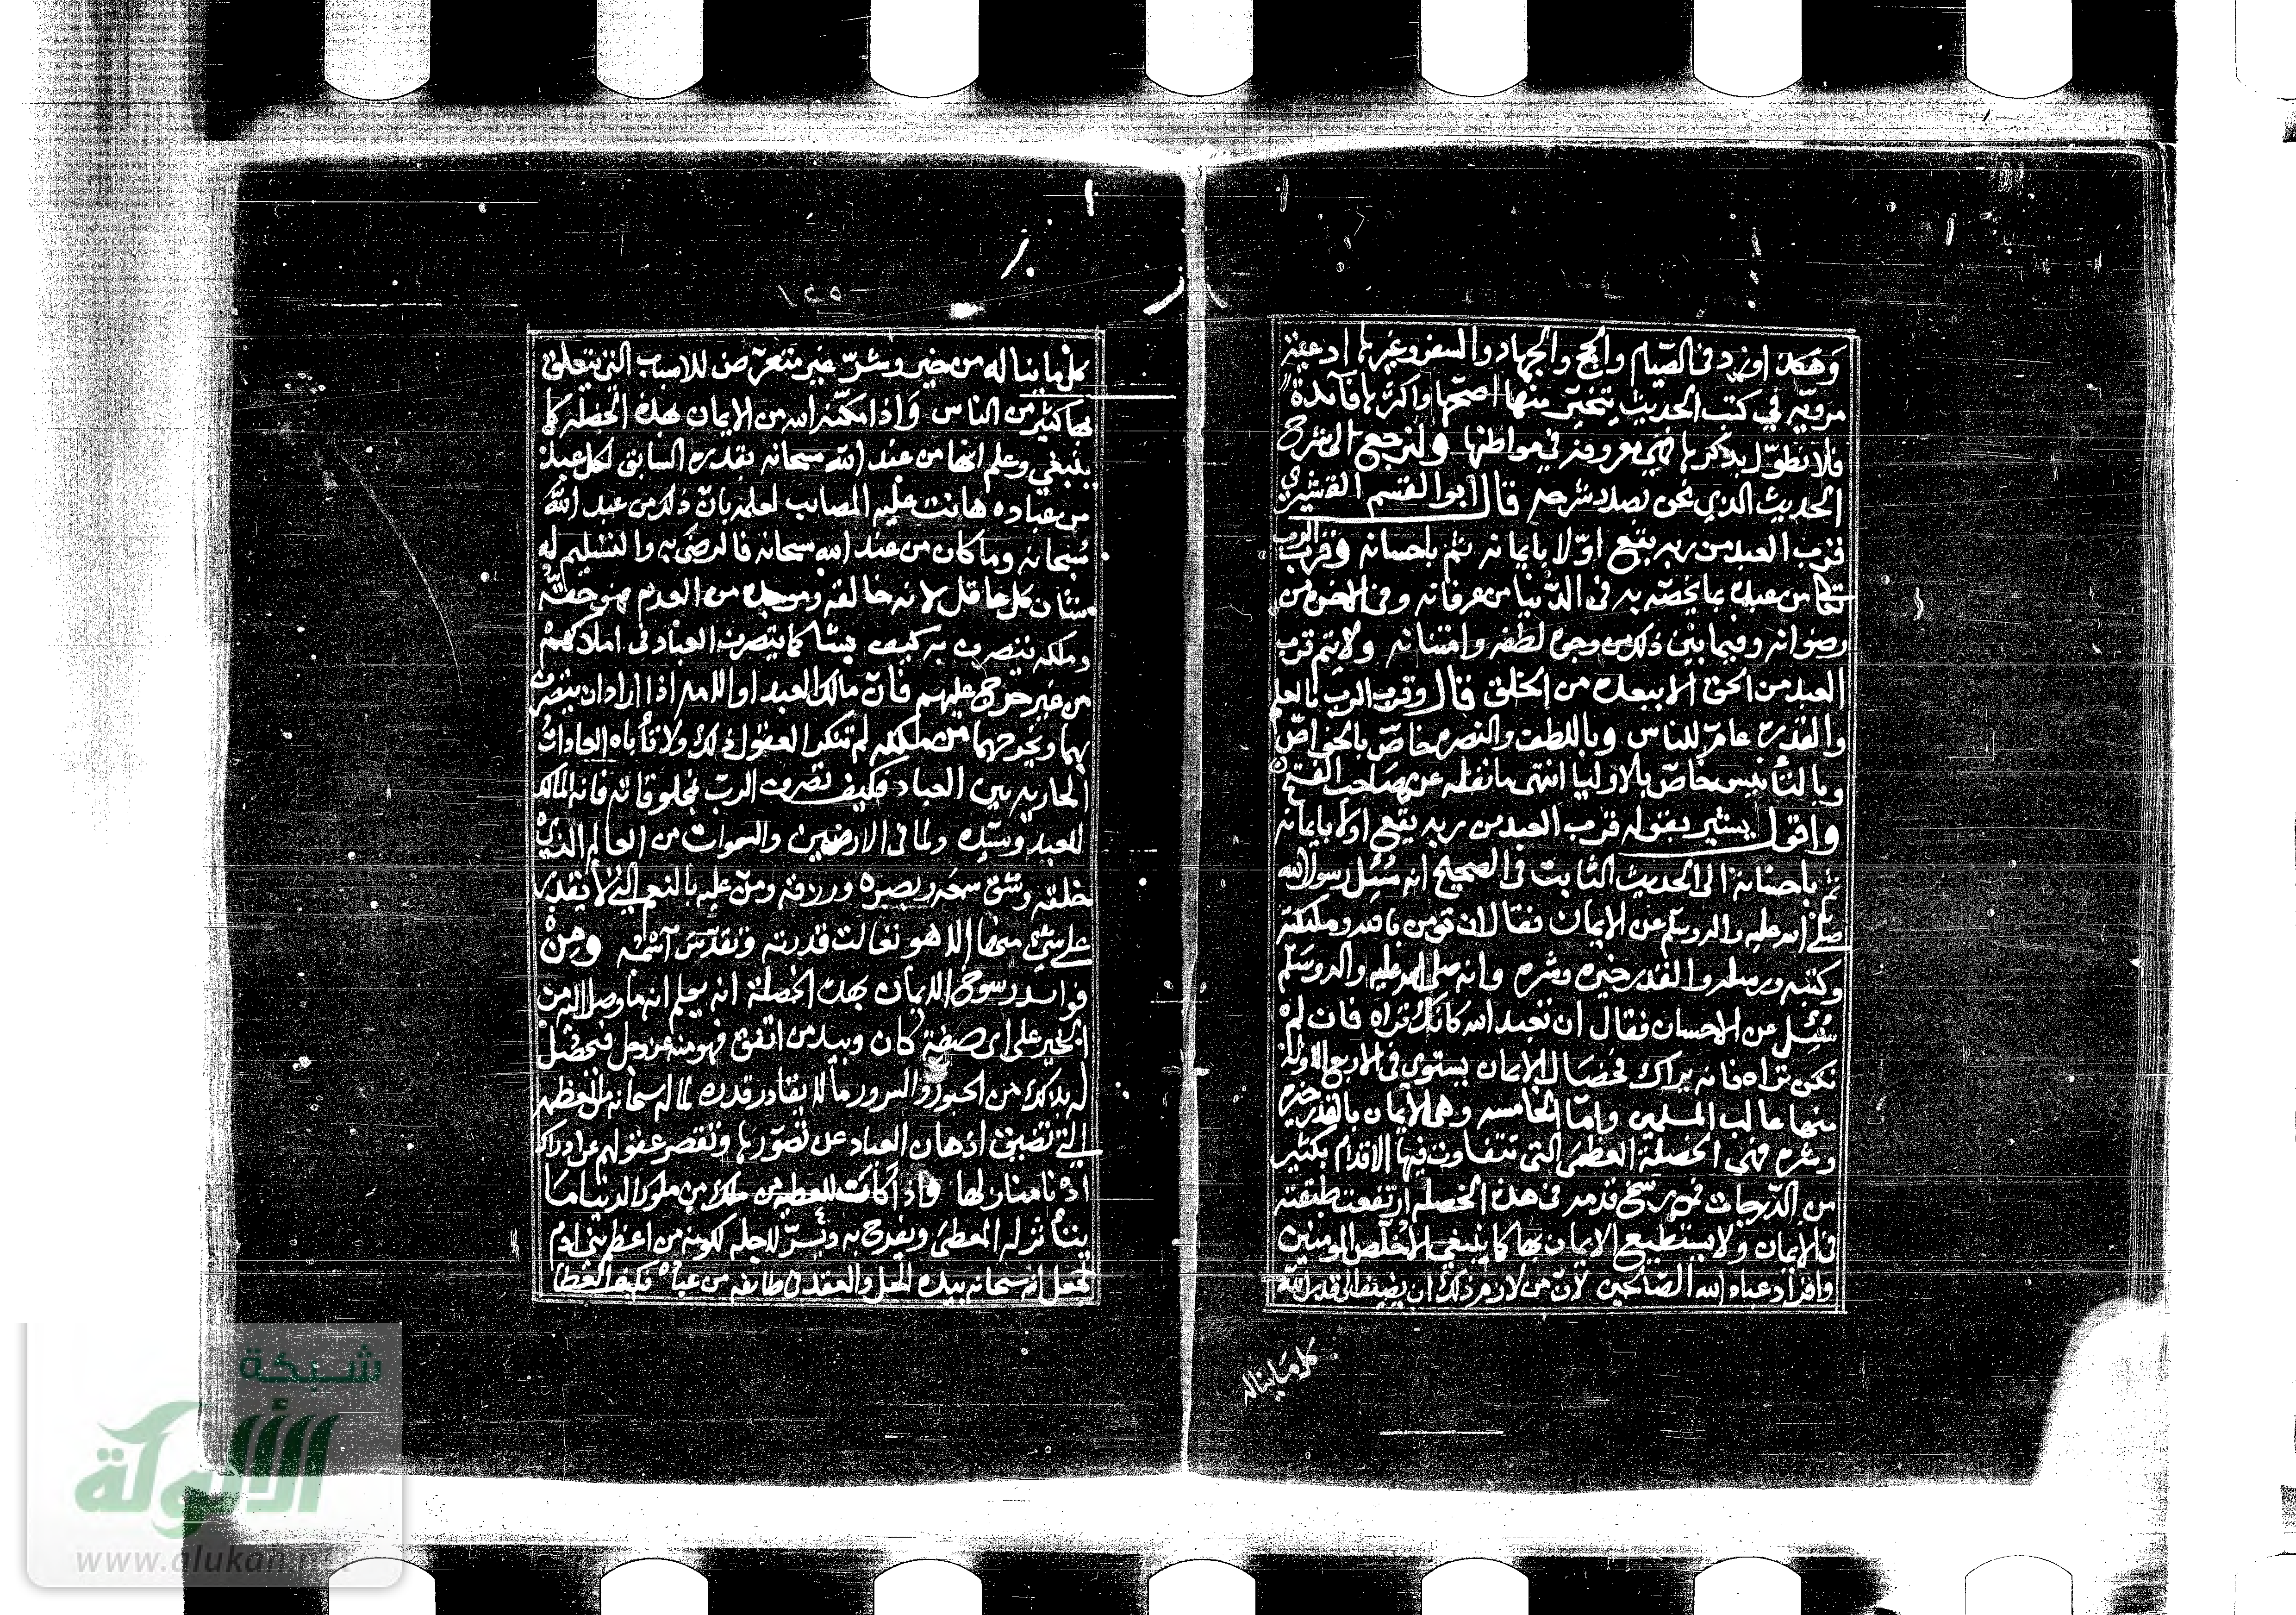 وهكذا ورد في الصيام والحج والجهاد والسفر وغيرها ادعية
مروية في كتب الحديث يتخير منها اصحها واكثرها فائدة
فلا نطول بذكرها فهي معروفة في مواطنها ولنرجع الى شرح
الحديث الذي نحن بصدد شرحه قال ابو القسم القشيري
قرب العبد من ربه يقع اولا بايمانه ثم باحسانه وقرب الرب
من عبده بما يخصه به في الدنيا من عرفانه وفي الاخرة من
رضوانه وفيما بين ذلك من وجوه لطفه وامتنانه ولا يتم قرب
العبد من الحق الا ببعده من الخلق قال وقرب الرب بالعلم
والقدرة عام للناس وباللطف والنصرة خاص بالخواص
وبالتأنيس خاص بالاوليا انتهى ما نقله عنه صاحب الفتح
واقول يشير بقوله قرب العبد من ربه يقع اولا بايمانه
ثم باحسانه الى الحديث الثابت في الصحيح انه سئل رسول الله
صلى الله عليه واله وسلم عن الايمان فقال ان تومن بالله وملئكته
وكتبه ورسله والقدر خيره وشره وانه صلى الله عليه واله وسلم
سئل عن الاحسان فقال ان تعبد الله كانك تراه فان لم
تكن تراه فانه يراك فخصال الايمان يستوي في الاربع الاولة
منها غالب المسلمين واما الخامسة وهي الايمان بالقدر خيره
وشره فهي الخصلة العظمى التي تتفاوت فيها الاقدام بكثير
من الدرجات فمن رسخ قدمه في هذه الخصلة ارتفعت طبقته
في الايمان ولا يستطيع الايمان بها كما ينبغي الا خلص المومنين
وافراد عباد الله الصالحين لان من لازم ذلك ان يضيف الى قدر الله
كل ما يناله
١٤٥
كل ما يناله من خير وشر غير متعرض للاسباب التي يتعلق
بها كثير من الناس واذا مكنه الله من الايمان بهذه الخصلة كما
ينبغي وعلم انها من عند الله سبحانه بقدره السابق لكل عبد
من عباده هانت عليه المصائب لعلمه بان ذلك من عبد الله
سبحانه وما كان من عند الله سبحانه فالرضى به والتسليم له
شان كل عاقل لانه خالقه وموجده من العدم فهو حقه
وملكه يتصرف به كيف يشا كما يتصرف العباد في املاكهم
من غير حرج عليهم فان مالك العبد او الامة اذا اراد ان يتصرف
بهما ويخرجهما من ملكه لم تنكر العقول ذلك ولا تأباه العادات
الجارية بين العباد فكيف تصرف الرب بمخلوقاته فانه المالك
للعبد وسيده ولما في الارضين والسموات من العالم الذي
خلقه وشق سمعه وبصره ورزقه ومن عليه بالنعم التي لا يقدر
على شي منها الا هو تعالت قدرته وتقدس اسمه ومن
فوائد رسوخ الايمان بهذه الخصلة انه يعلم انه ما وصل اليه من
الخير على اي صفة كان وبيد من اتفق فهو منه عز وجل فيحصل
له بذلك من الحبور والسرور ما لا يقادر قدره لما له سبحانه من العظمة
التي تضيق اذهان العباد عن تصورها وتقصر عقولهم عن ادراك
ادنا منازلها واذا كانت العطية من ملك من ملوك الدنيا مما
يتأثر له المعطى ويفرح به ويسر لاجله لكونه من اعظم بني ادم
لجعل الله سبحانه بيده الحل والعقد في طائفة من عباده فكيف العطا
شبكة
الألوكة